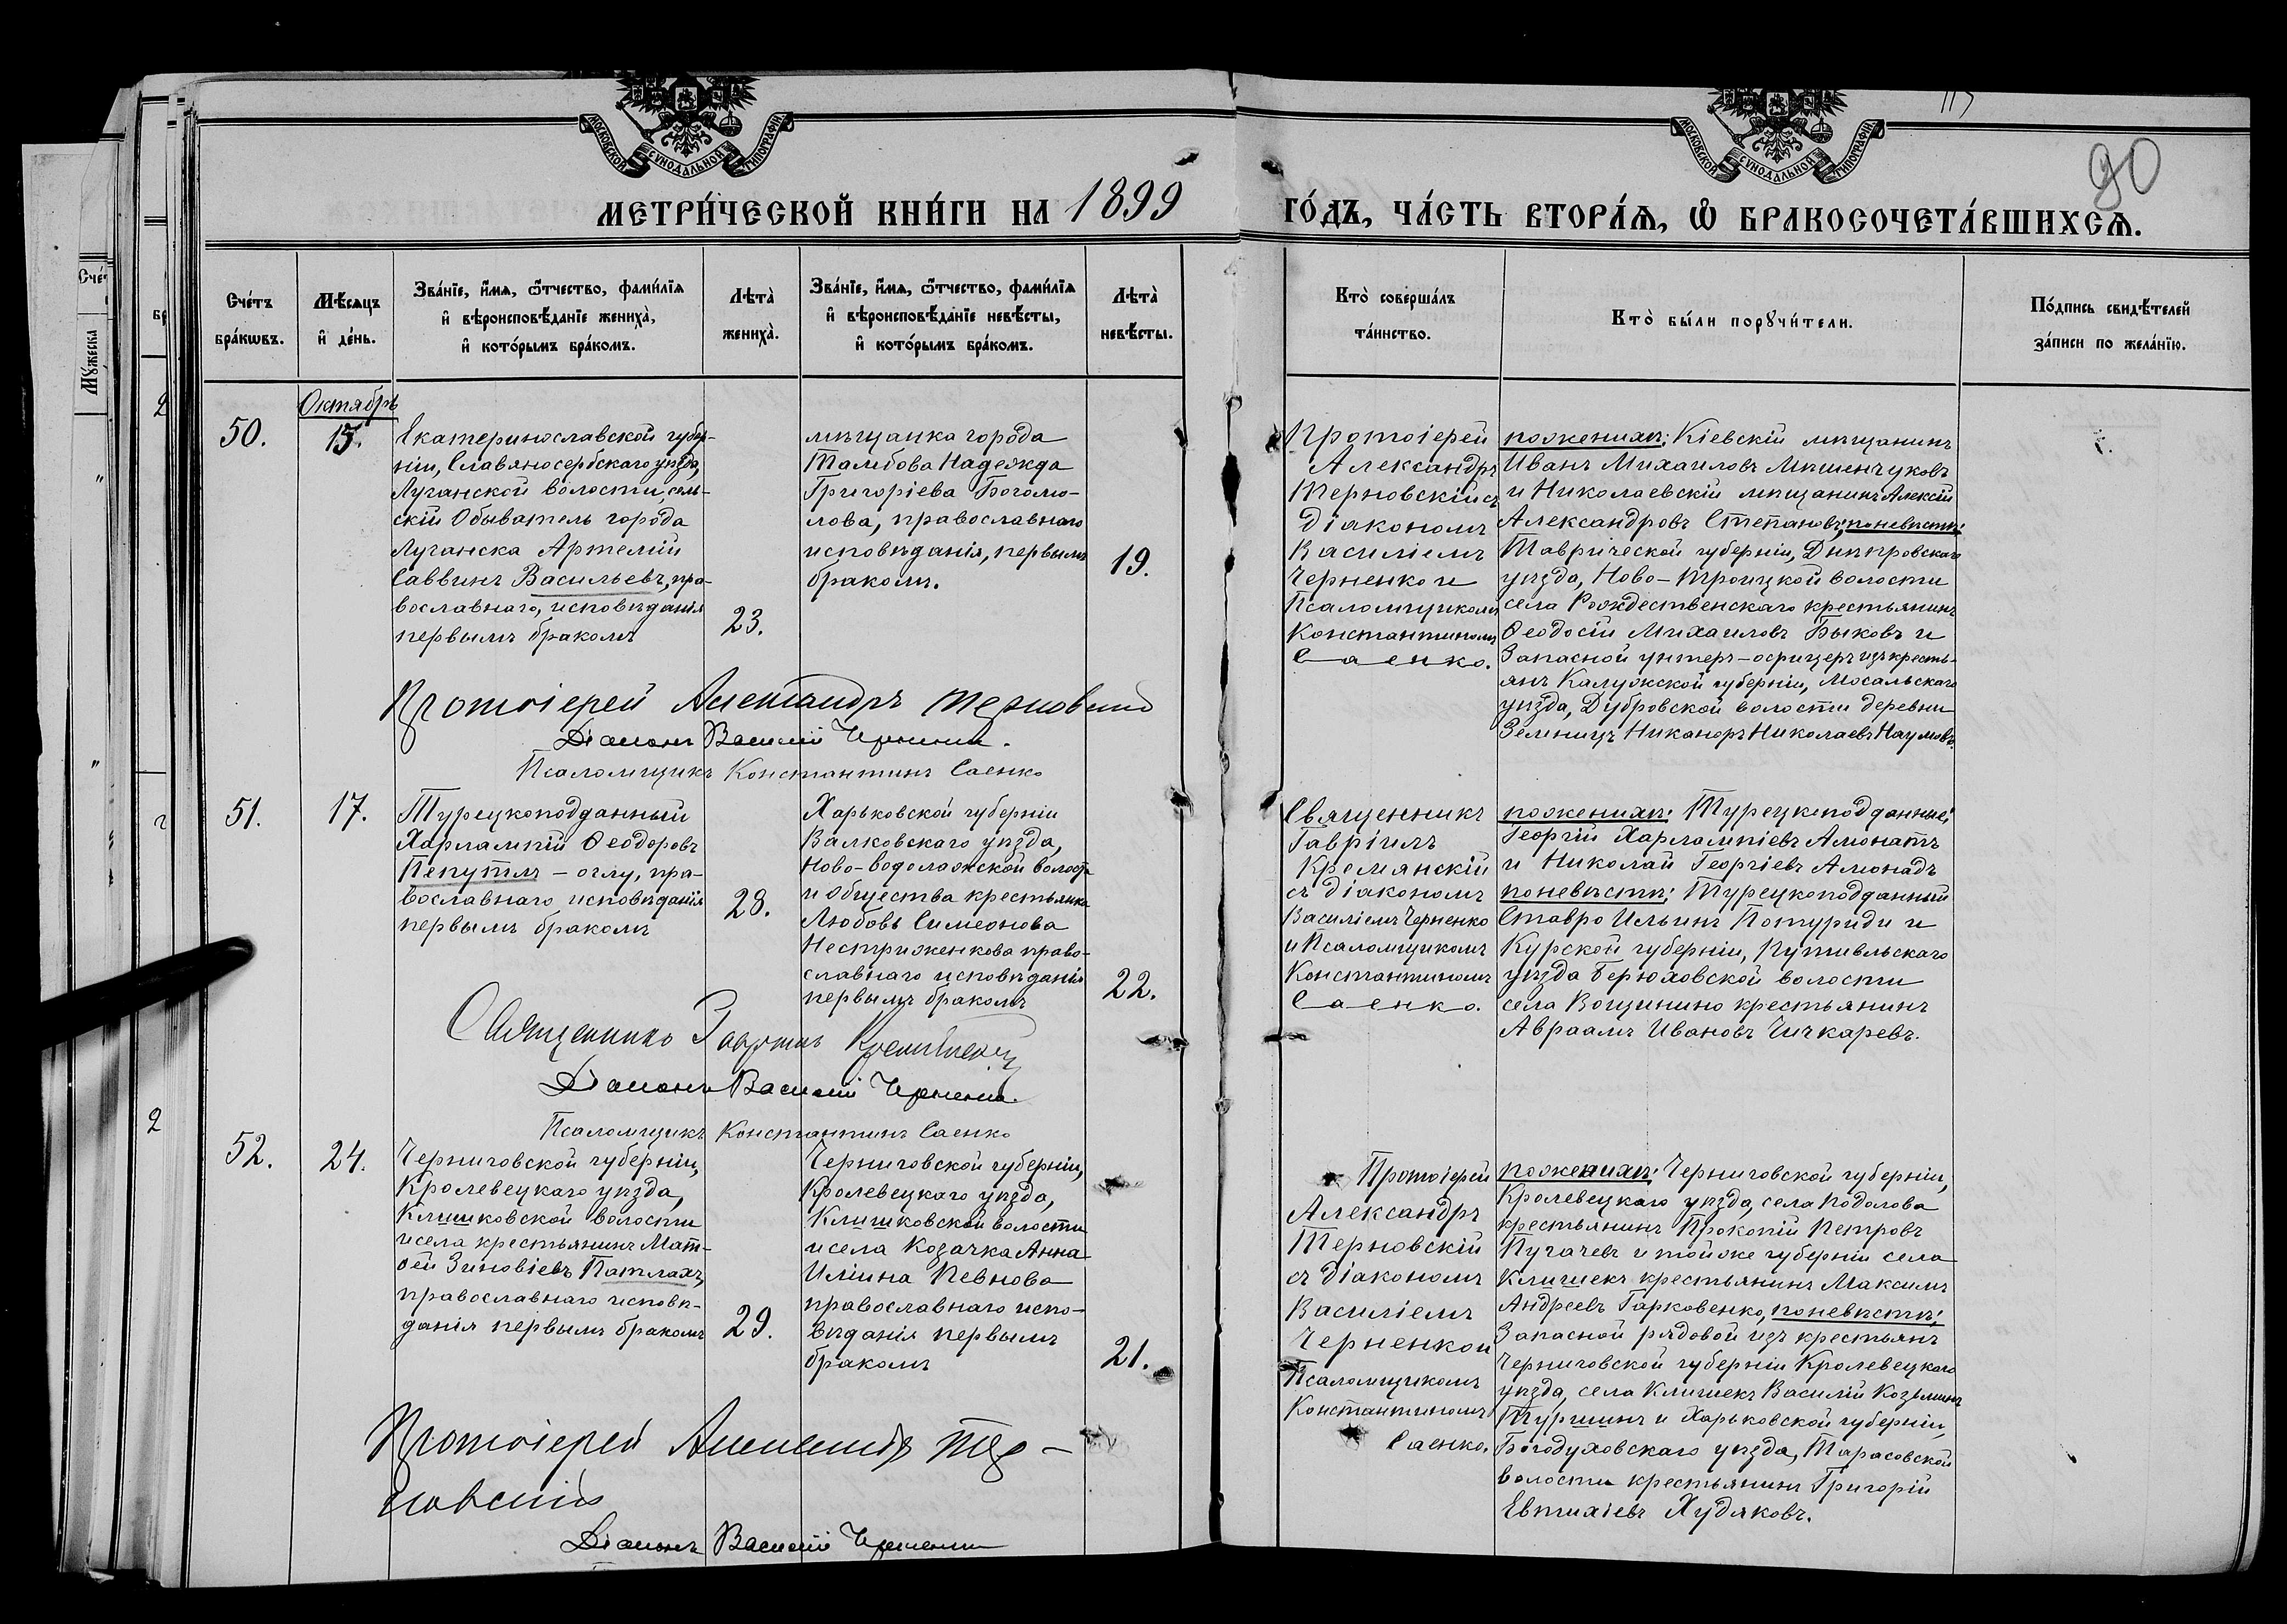 МОСКОВСКОЙ СѴНОДАЛЬНОЙ ТИПОГРАФІИ
МОСКОВСКОЙ СѴНОДАЛЬНОЙ ТИПОГРАФІИ
90
МЕТРИ́ЧЕСКОЙ КНИ́ГИ НА 1899 ГО́ДЪ, ЧА́СТЬ ВТОРА́Я, Ѡ БРАКОСОЧЕТА́ВШИХСЯ.
Сче́тъ бра́ковъ.
Мѣ́сяцъ и де́нь.
Зва́нїе, и́мя, ѻ́тчество, фами́лїя
и вѣроисповѣ́данїе жениха̀,
и кото́рымъ бра́комъ.
Лѣта̀ жениха̀.
Зва́нїе, и́мя, ѻ́тчество, фами́лїя
и вѣроисповѣ́данїе невѣ́сты,
и кото́рымъ бра́комъ.
Лѣта̀ невѣ́сты.
Кто̀ соверша́лъ
та́инство.
Кто̀ бы́ли порꙋчи́тели.
По́дпись свидѣ́телей
за́писи по жела́нїю.
Октябрь
50.
15.
Екатеринославской губер-
ніи, Славяносербскаго уѣзда,
Луганской волости, сель-
скій Обыватель города
Луганска Артемій
Саввинъ Васильевъ, пра-
вославнаго, исповѣданія
первымъ бракомъ
23.
мѣщанка города
Тамбова Надежда
Григоріева Богомо-
лова, православнаго
исповѣданія, первымъ
бракомъ.
19.
Протоіерей
Александръ
Терновскій съ
діакономъ
Василіемъ
Черненко и
Псаломщикомъ
Константиномъ
Саенко.
по женихѣ: Кіевскій мѣщанинъ
Иванъ Михаиловъ Мѣшенчуковъ
и Николаевскій мѣщанинъ Алексій
Александровъ Степановъ; по невѣстѣ:
Таврической губерніи, Днѣпровскаго
уѣзда, Ново-Троицкой волости
села Рождественскаго крестьянинъ
Ѳеодосій Михаиловъ Быковъ и
Запасной унтеръ-офицеръ изъ кресть-
янъ Калужской губерніи, Мосальскаго
уѣзда, Дубровской волости деревни
Зеленицъ Никаноръ Николаевъ Наумовъ.
Протоіерей Александръ Терновскій
Діаконъ Василій Черненко.
Псаломщикъ Константинъ Саенко
51.
17.
Турецкоподданный
Харлампій Ѳеодоровъ
Пекутлъ - оглу, пра-
вославнаго исповѣданія
первымъ бракомъ
28.
Харьковской губерніи
Валковскаго уѣзда,
Ново-водолажской волости
и общества крестьянка
Любовь Симеонова
Нестриженкова право-
славнаго исповѣданія
первымъ бракомъ
22.
Священникъ
Гавріилъ
Кремянскій
съ діакономъ
Василіемъ Черненко
и Псаломщикомъ
Константиномъ
Саенко.
по женихѣ: Турецкоподданные
Георгій Харлампіевъ Амонатъ
и Николай Георгіевъ Амонадъ
по невѣстѣ: Турецкоподданный
Ставро Ильинъ Потуриди и
Курской губерніи, Путивльскаго
уѣзда Берюховской волости
села Вощинино крестьянинъ
Авраамъ Ивановъ Чичкаревъ.
Священникъ Гавріилъ Кремянскій
Діаконъ Василій Черненко.
Псаломщикъ Константинъ Саенко
52.
24.
Черниговской губерніи,
Кролевецкаго уѣзда,
Клишковской волости
и села крестьянинъ Мат-
ѳей Зиновіевъ Патлахъ,
православнаго исповѣ-
данія первымъ бракомъ
29.
Черниговской губерніи,
Кролевецкаго уѣзда,
Клишковской волости
и села Козачка Анна
Иліина Певнова
православнаго испо-
вѣданія первымъ
бракомъ
21.
Протоіерей
Александръ
Терновскій
съ діакономъ
Василіемъ
Черненко и
Псаломщикомъ
Константиномъ
Саенко.
по женихѣ: Черниговской губерніи,
Кролевецкаго уѣзда, села Подолова
крестьянинъ Прокопій Петровъ
Пугачевъ и той же губерніи села
Клишекъ крестьянинъ Максимъ
Андреевъ Гарковенко, по невѣстѣ:
Запасной рядовой изъ крестьянъ
Черниговской губерніи Кролевецкаго
уѣзда, села Клишекъ Василій Козьминъ
Туршинъ и Харьковской губерніи,
Богодуховскаго уѣзда, Тарасовской
волости крестьянинъ Григорій
Евтихіевъ Худяковъ.
Протоіерей Александръ Тер-
новскій
Діаконъ Василій Черненко